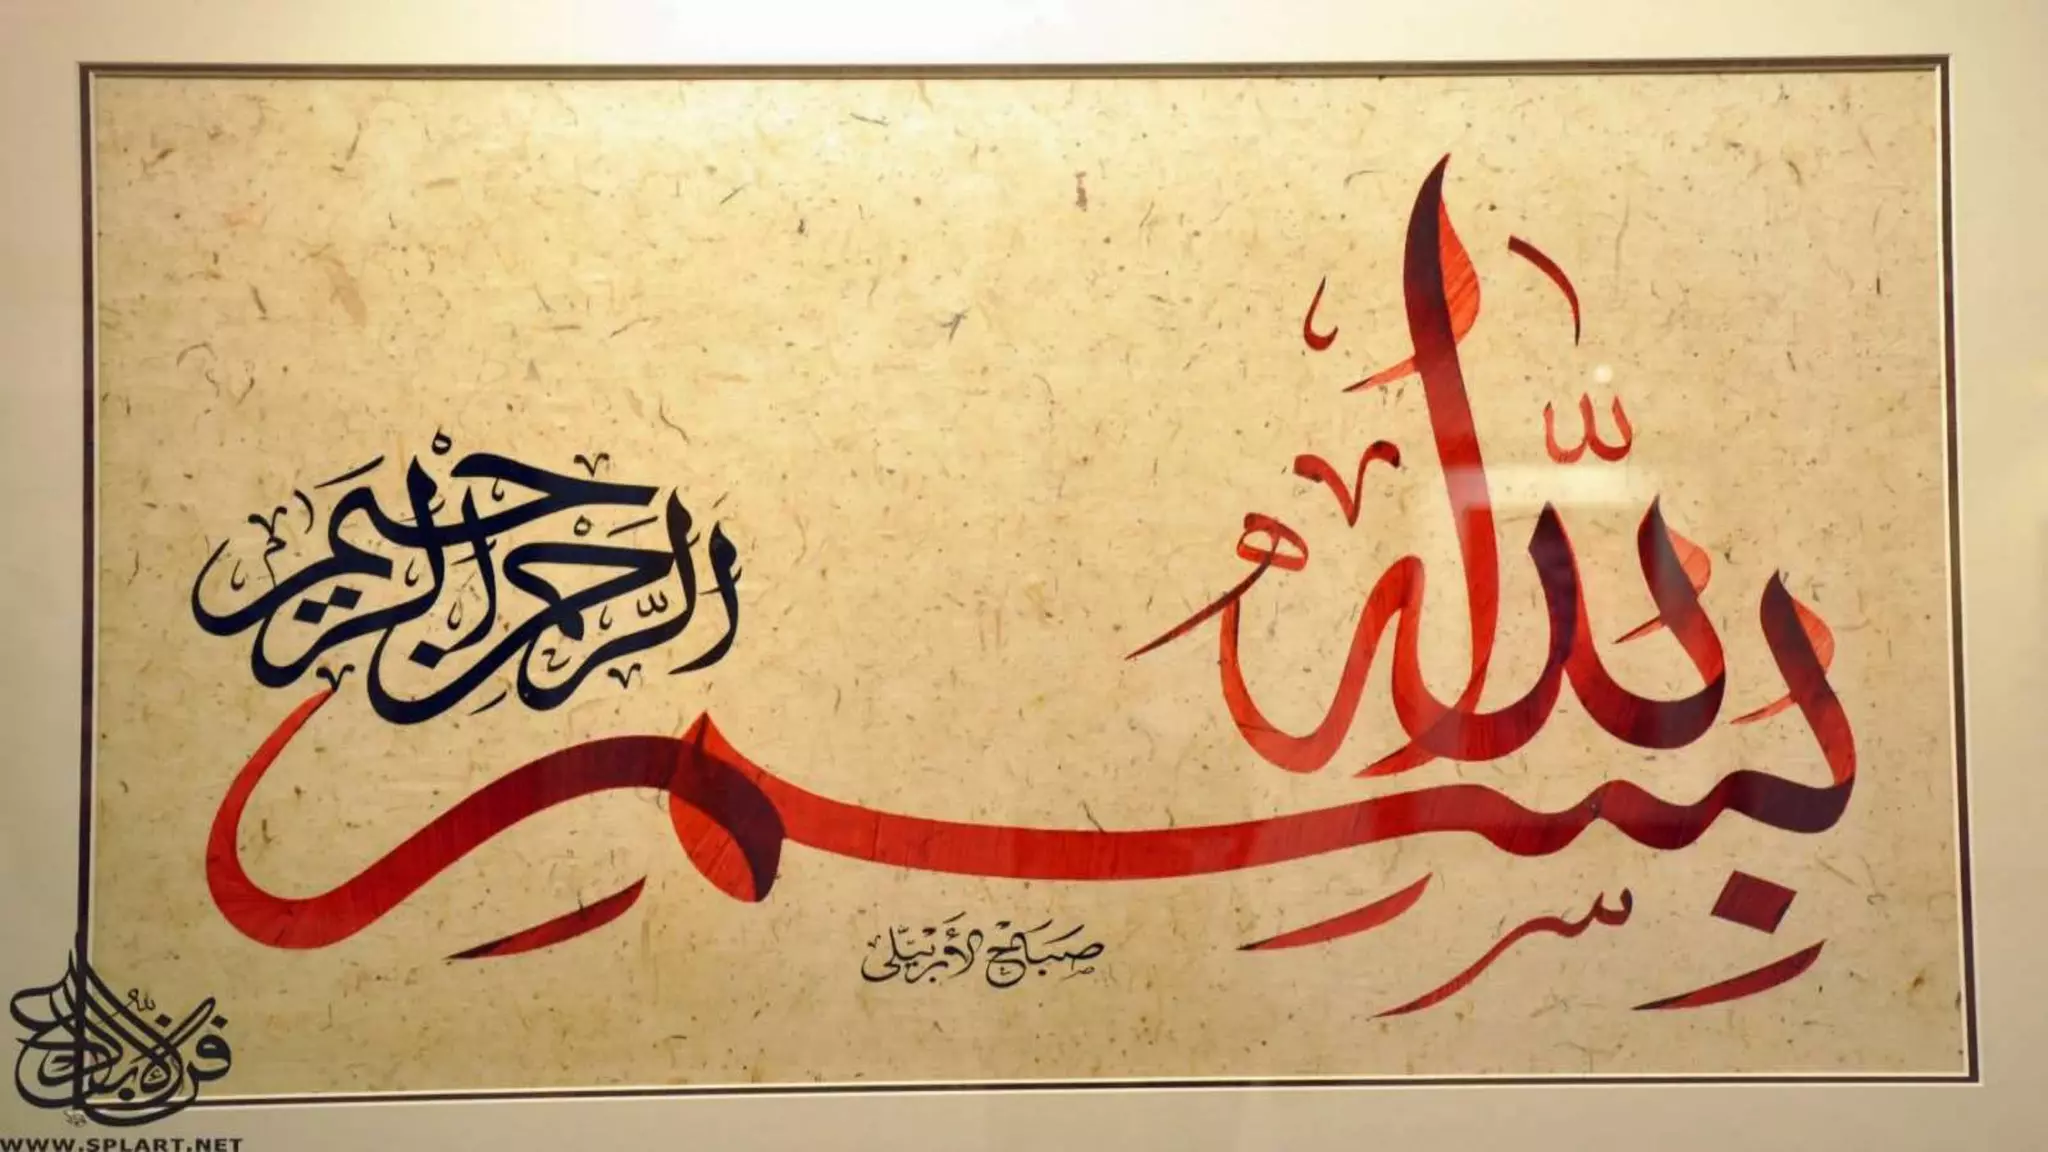 بِسْمِ اللّٰهِ
الرَّحْمٰنِ الرَّحِيْمِ
صَبَاحْ الأَرْبَيْلّى
فن الإبداع
WWW.SPLART.NET